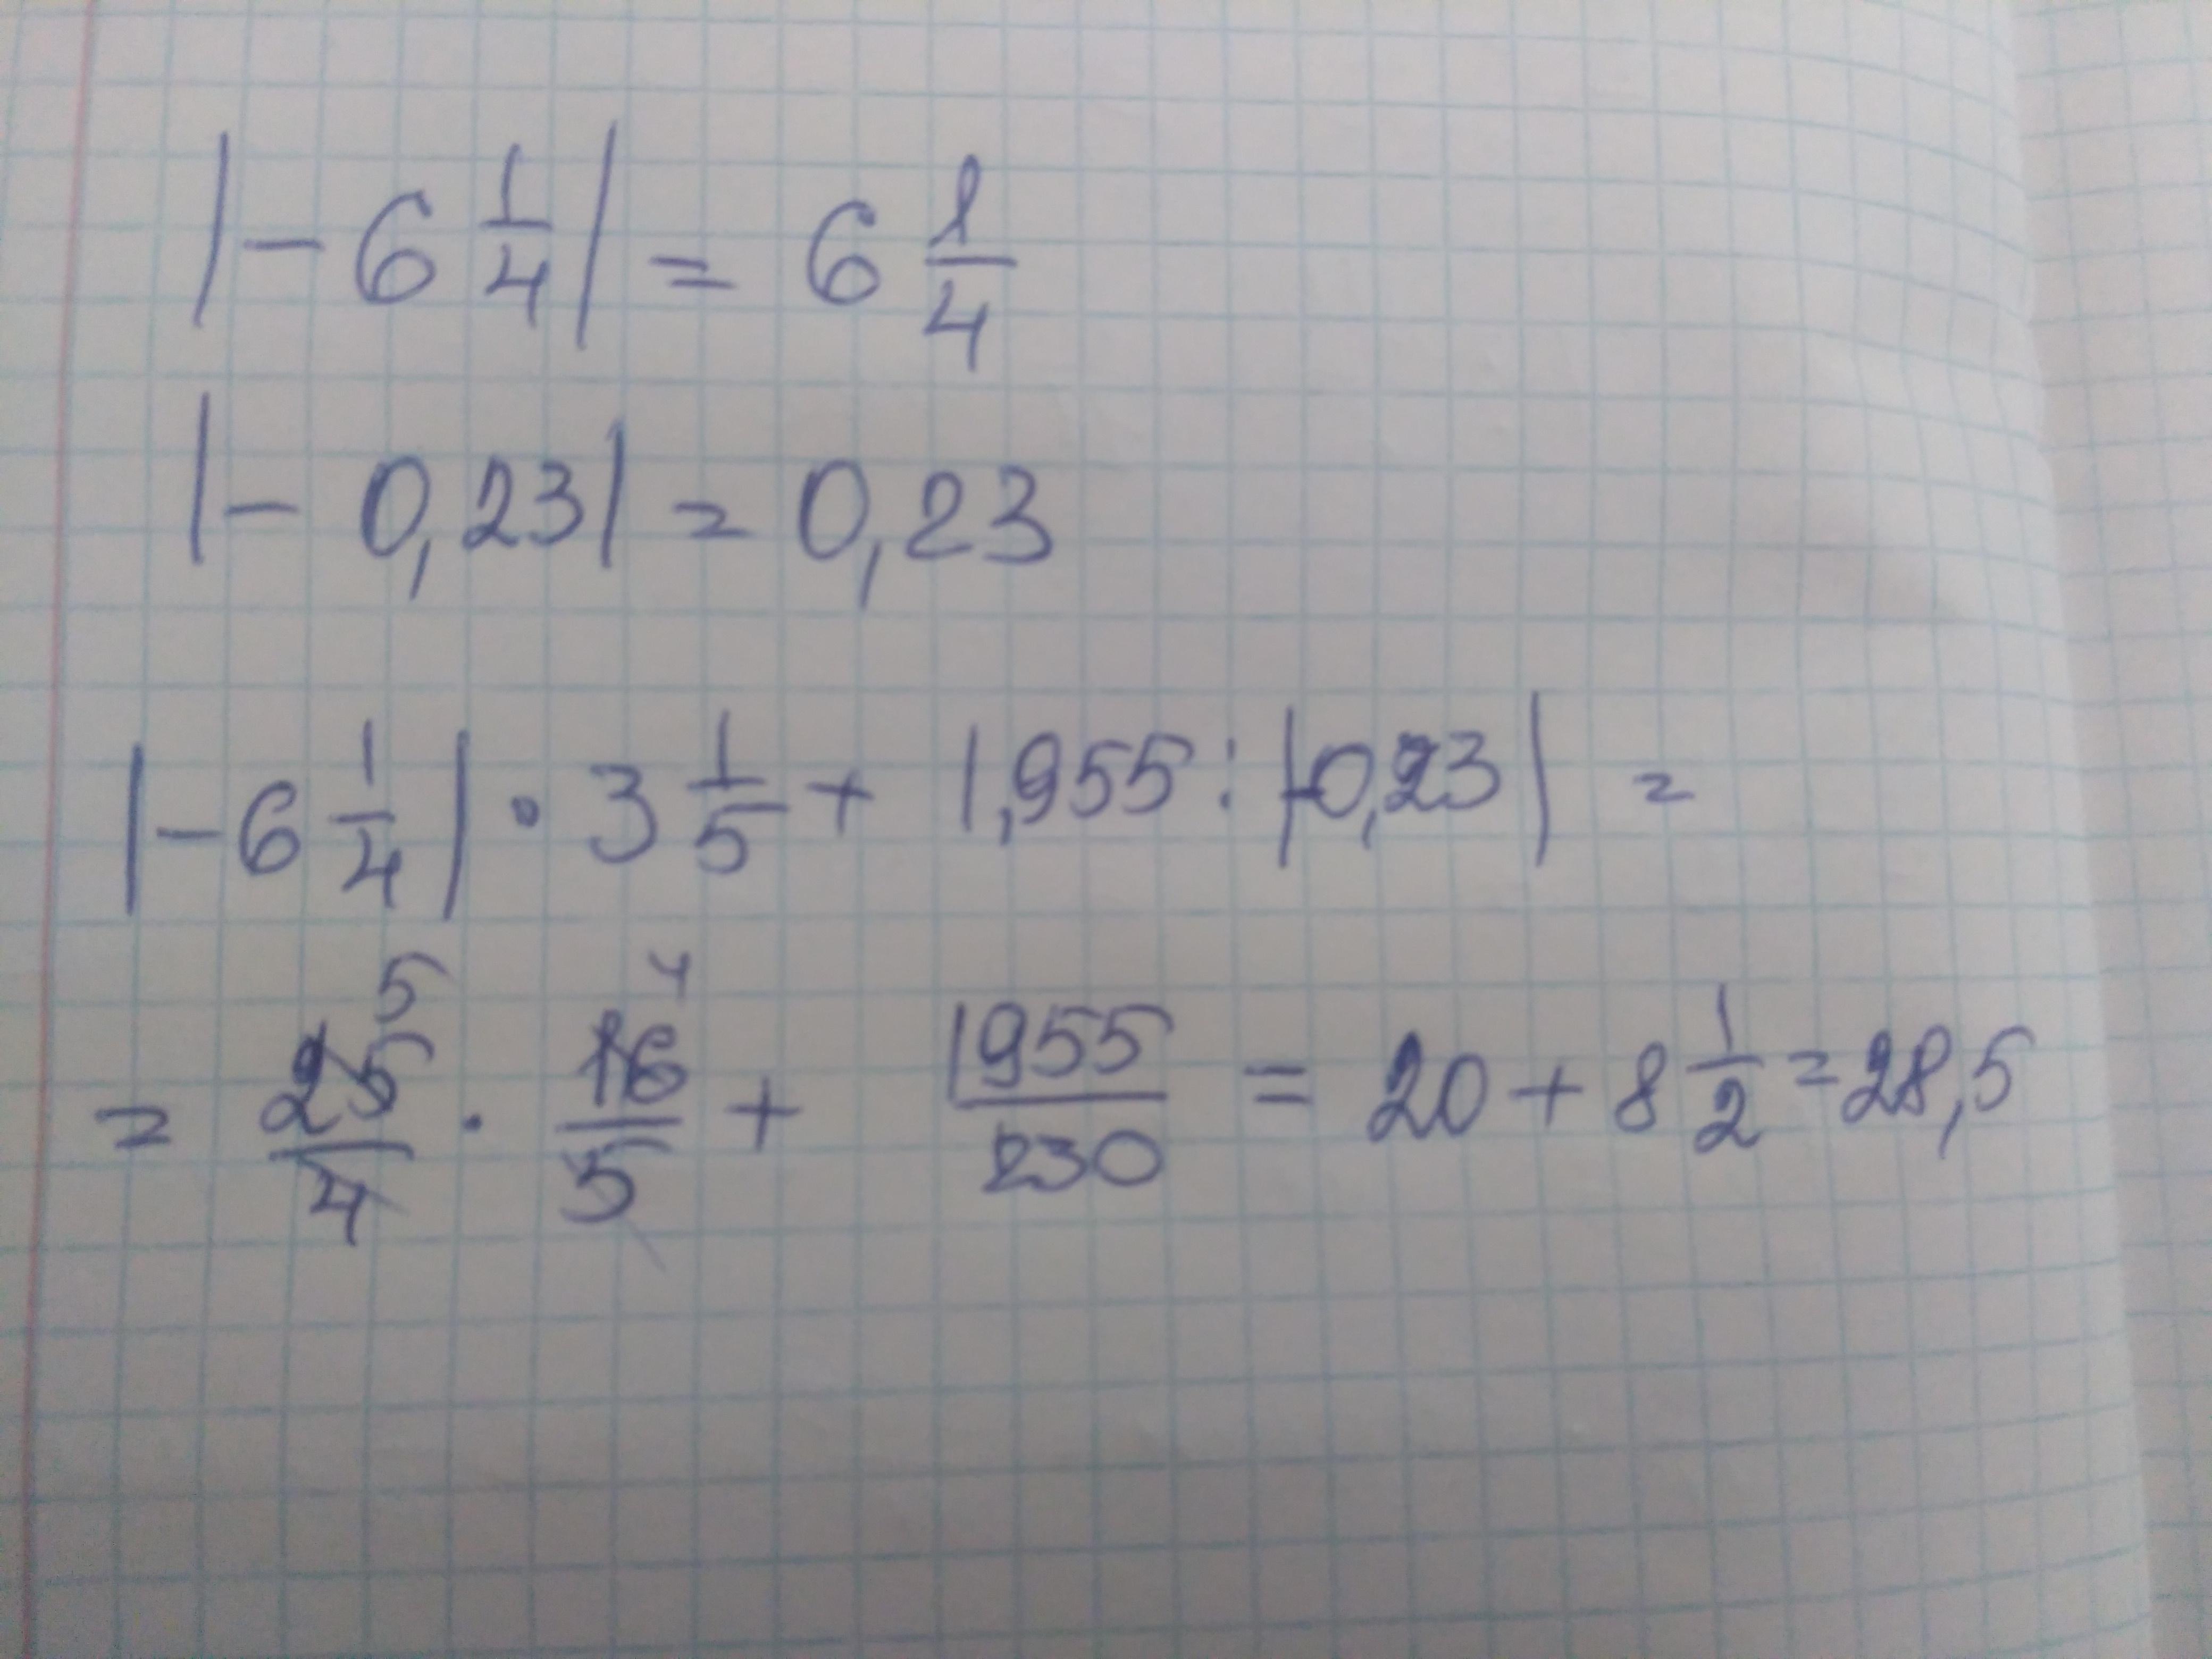 |-6 1/4| = 6 1/4
|- 0,23| = 0,23
|-6 1/4| · 3 1/5 + 1,955 : |-0,23| =
= 25/4 5 · 16/5 4 + 1955/230 = 20 + 8 1/2 = 28,5